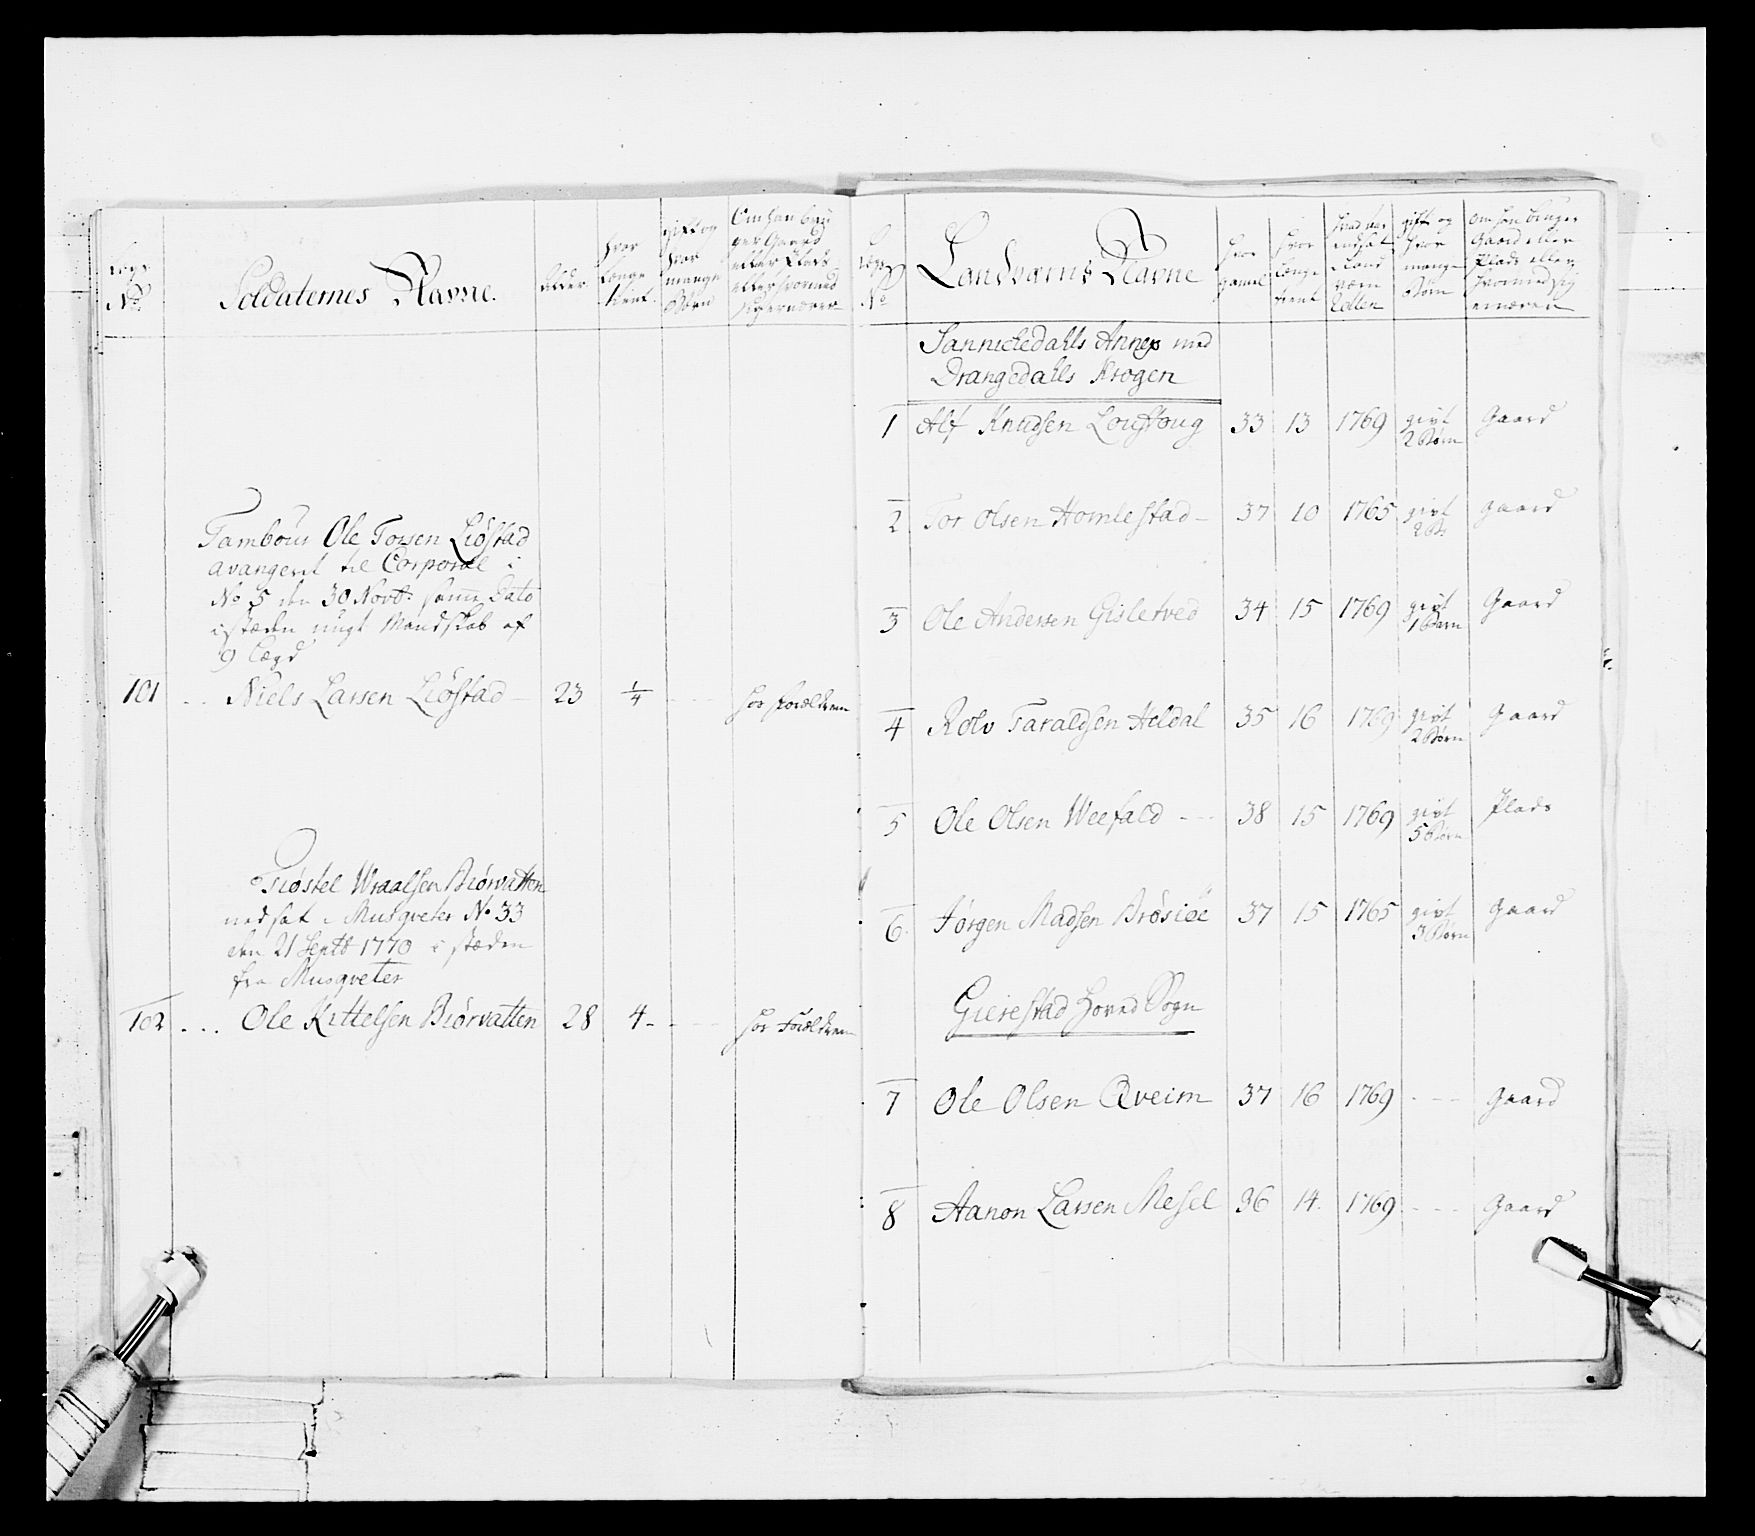 Lægs No
Soldaternes Navne.
Alder
hvor længe tient
gift og hvor mange Børn
Om han bru
ger Gaard
eller Plads
eller hvormed
Tambour Ole Torsen Liøstad
avangeret til Corporal i
No 5 den 30 Novb: samme Dato
istæden nygt Mandskab af
9 Lægd
101 .. Niels Larsen Liøstad — 23 1/4 - - - hos Forældrene
Tiøstel Wraalsen Biørvatten
nedsat i Musqveter No 33
den 21 Septb 1770 i stæden
fra Musqveter
102 ... Ole Kittelsen Biørvatten 28 4 - - - hos Forældrene
Lægs No
Landværns Navne
hvor gamel
hvor længe tient
hvad aar indsat i Land værn Rollen
gift og hvor mange Børn
Om han bruger
Gaard eller
Plads eller
hvormed sig
ernærer
Sannickedahls Annex med
Drangedahls Krogen
1 Alf Knudsen Loustoug 33 13 1769 givt 2 Børn Gaard
2 Tor Olsen Homlestad — 37 10 1765 givt 2 B. Gaard
3 Ole Andersen Gisletved 34 15 1769 givt 1 Barn Gaard
4 Rolv Taraldsen Heldal 35 16 1769 givt 2 Børn Gaard
5 Ole Olsen Weefald - - - 38 15 1769 givt 5 Børn Plads
6. Jørgen Madsen Brøsiøe 37 15 1765 givt 3 Børn Gaard
Gierestad Hoved Sogn
7 Ole Olsen Qveim 37 16 1769 - - - Gaard
8 Aanon Larsen Mesel 36 14. 1769 - - - Gaard